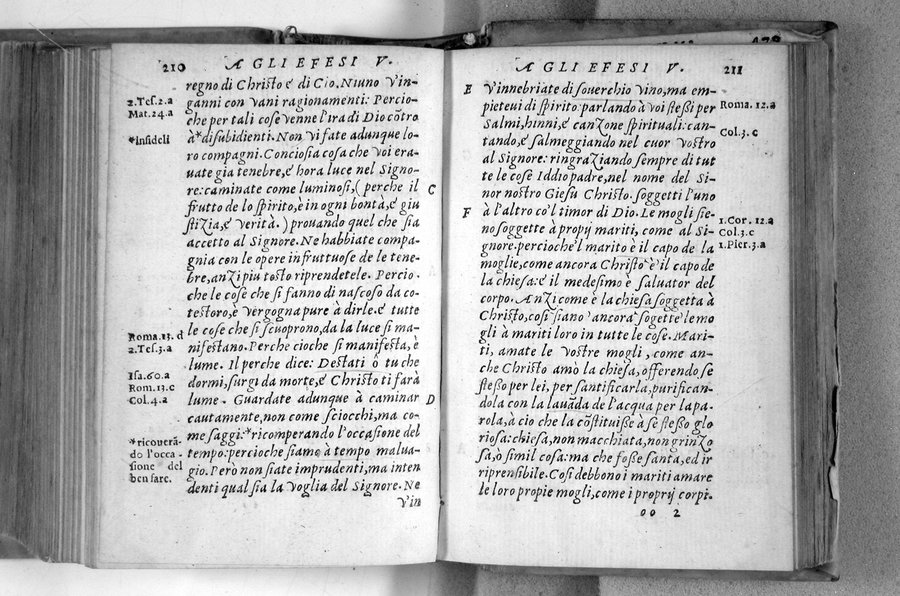 210
A GLI EFESI V.
regno di Christo e di Dio. Niuno v'in-
ganni con vani ragionamenti: Percio-
che per tali cose venne l'ira di Dio cõtro
à*disubidienti. Non vi fate adunque lo-
ro compagni. Conciosia cosa che voi era-
uate gia tenebre, é hora luce nel Signo-
re: caminate come luminosi, (perche il
frutto de lo spirito, è in ogni bontà, é giu
stizia, é verità.) prouando quel che sia
accetto al Signore. Ne habbiate compa-
gnia con le opere infruttuose de le tene-
bre, anzi piu tosto riprendetele. Percio-
che le cose che si fanno di nascoso da co-
testoro, è vergogna pure à dirle. é tutte
le cose che si scuoprono, da la luce si ma-
nifestano. Perche cioche si manifesta, è
lume. Il perche dice: Destati ô tu che
dormi, surgi da morte, é Christo ti farà
lume. Guardate adunque à caminar
cautamente, non come sciocchi, ma co-
me saggi: *ricomperando l'occasione del
tempo: percioche siamo à tempo malua-
gio. Però non siate imprudenti, ma inten
denti qual sia la voglia del Signore. Ne
v'in
2. Tes. 2. a
Mat. 24. a
*Insideli
C
Roma. 13. d
2. Tes. 3. a
Isa. 60. a
Rom. 13. c
Col. 4. a
D
*ricouerã-
do l'occa-
sione del
ben fare.
A GLI EFESI V.
211
E
v'innebriate di souerchio vino, ma em-
pieteui di spirito: parlando à voi stessi per
Salmi, hinni, é canzone spirituali: can-
tando, é salmeggiando nel cuor vostro
al Signore: ringraziando sempre di tut
te le cose Iddio padre, nel nome del Si-
nor nostro Giesu Christo. soggetti l'uno
F
à l'altro co'l timor di Dio. Le mogli sie-
no soggette à proprij mariti, come al Si-
gnore. percioche'l marito è il capo de la
moglie, come ancora Christo è il capo de
la chiesa: é il medesimo è saluator del
corpo. Anzi come è la chiesa soggetta à
Christo, cosi siano ancora sogette le mo
gli à mariti loro in tutte le cose. Mari-
ti, amate le vostre mogli, come an-
che Christo amò la chiesa, offerendo se
stesso per lei, per santificarla, purifican-
dola con la lauãda de l'acqua per la pa-
rola, à cio che la cõstituisse à sè stesso glo
riosa: chiesa, non macchiata, non grinzo
sa, ò simil cosa: ma che fosse santa, ed ir
riprensibile. Cosi debbono i mariti amare
le loro propie mogli, come i proprij corpi.
oo 2
Roma. 12. a
Col. 3. c
1. Cor. 12. a
Col. 3. c
1. Pier. 3. a